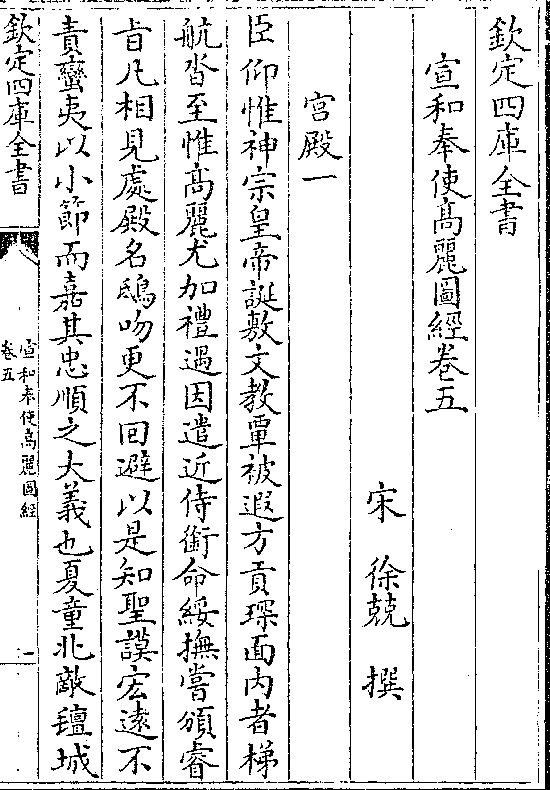 欽定四庫全書
宣和奉使髙麗圖經卷五
宋 徐兢 撰
宫殿一
臣仰惟神宗皇帝誕敷文教覃被遐方貢琛面内者梯
航沓至惟髙麗尤加禮遇因遣近侍銜命綏撫嘗頒睿
旨凡相見處殿名鴟吻更不回避以是知聖謨宏逺不
責蠻夷以小節而嘉其忠順之大義也夏童北敵氊城
欽定四庫全書
宣和奉使髙麗圖經
卷五
一